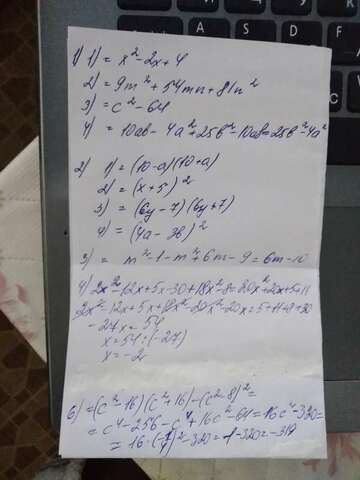 1) 1) = x² - 2x + 4
2) = 9m² + 54mn + 81n²
3) = c² - 64
4) = 10ab - 4a² + 25b² - 10ab = 25b² - 4a²
2) 1) = (10-a)(10+a)
2) = (x+5)²
3) = (6y-7)(6y+7)
4) = (4a-3b)²
3) = m² - 1 - m² + 6m - 9 = 6m - 10
4) 2x² - 12x + 5x - 30 + 18x² - 8 = 20x² + 20x + 5 + 11
2x² - 12x + 5x + 18x² - 20x² - 20x = 5 + 11 + 8 + 30
- 27x = 54
x = 54 : (-27)
x = -2
6) = (c² - 16)(c² + 16) - (c² - 8)² =
= c⁴ - 256 - c⁴ + 16c² - 64 = 16c² - 320 =
= 16 · ( )² - 320 = 1 - 320 = - 319